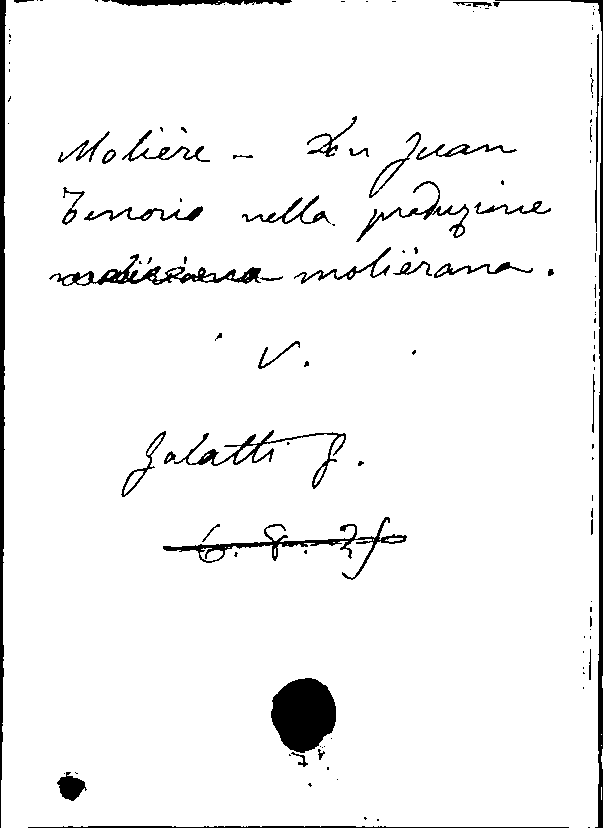 Molière - Don Juan
Tenorio nella produzione
molièrana.
V.
Galatti G.
6.8.25